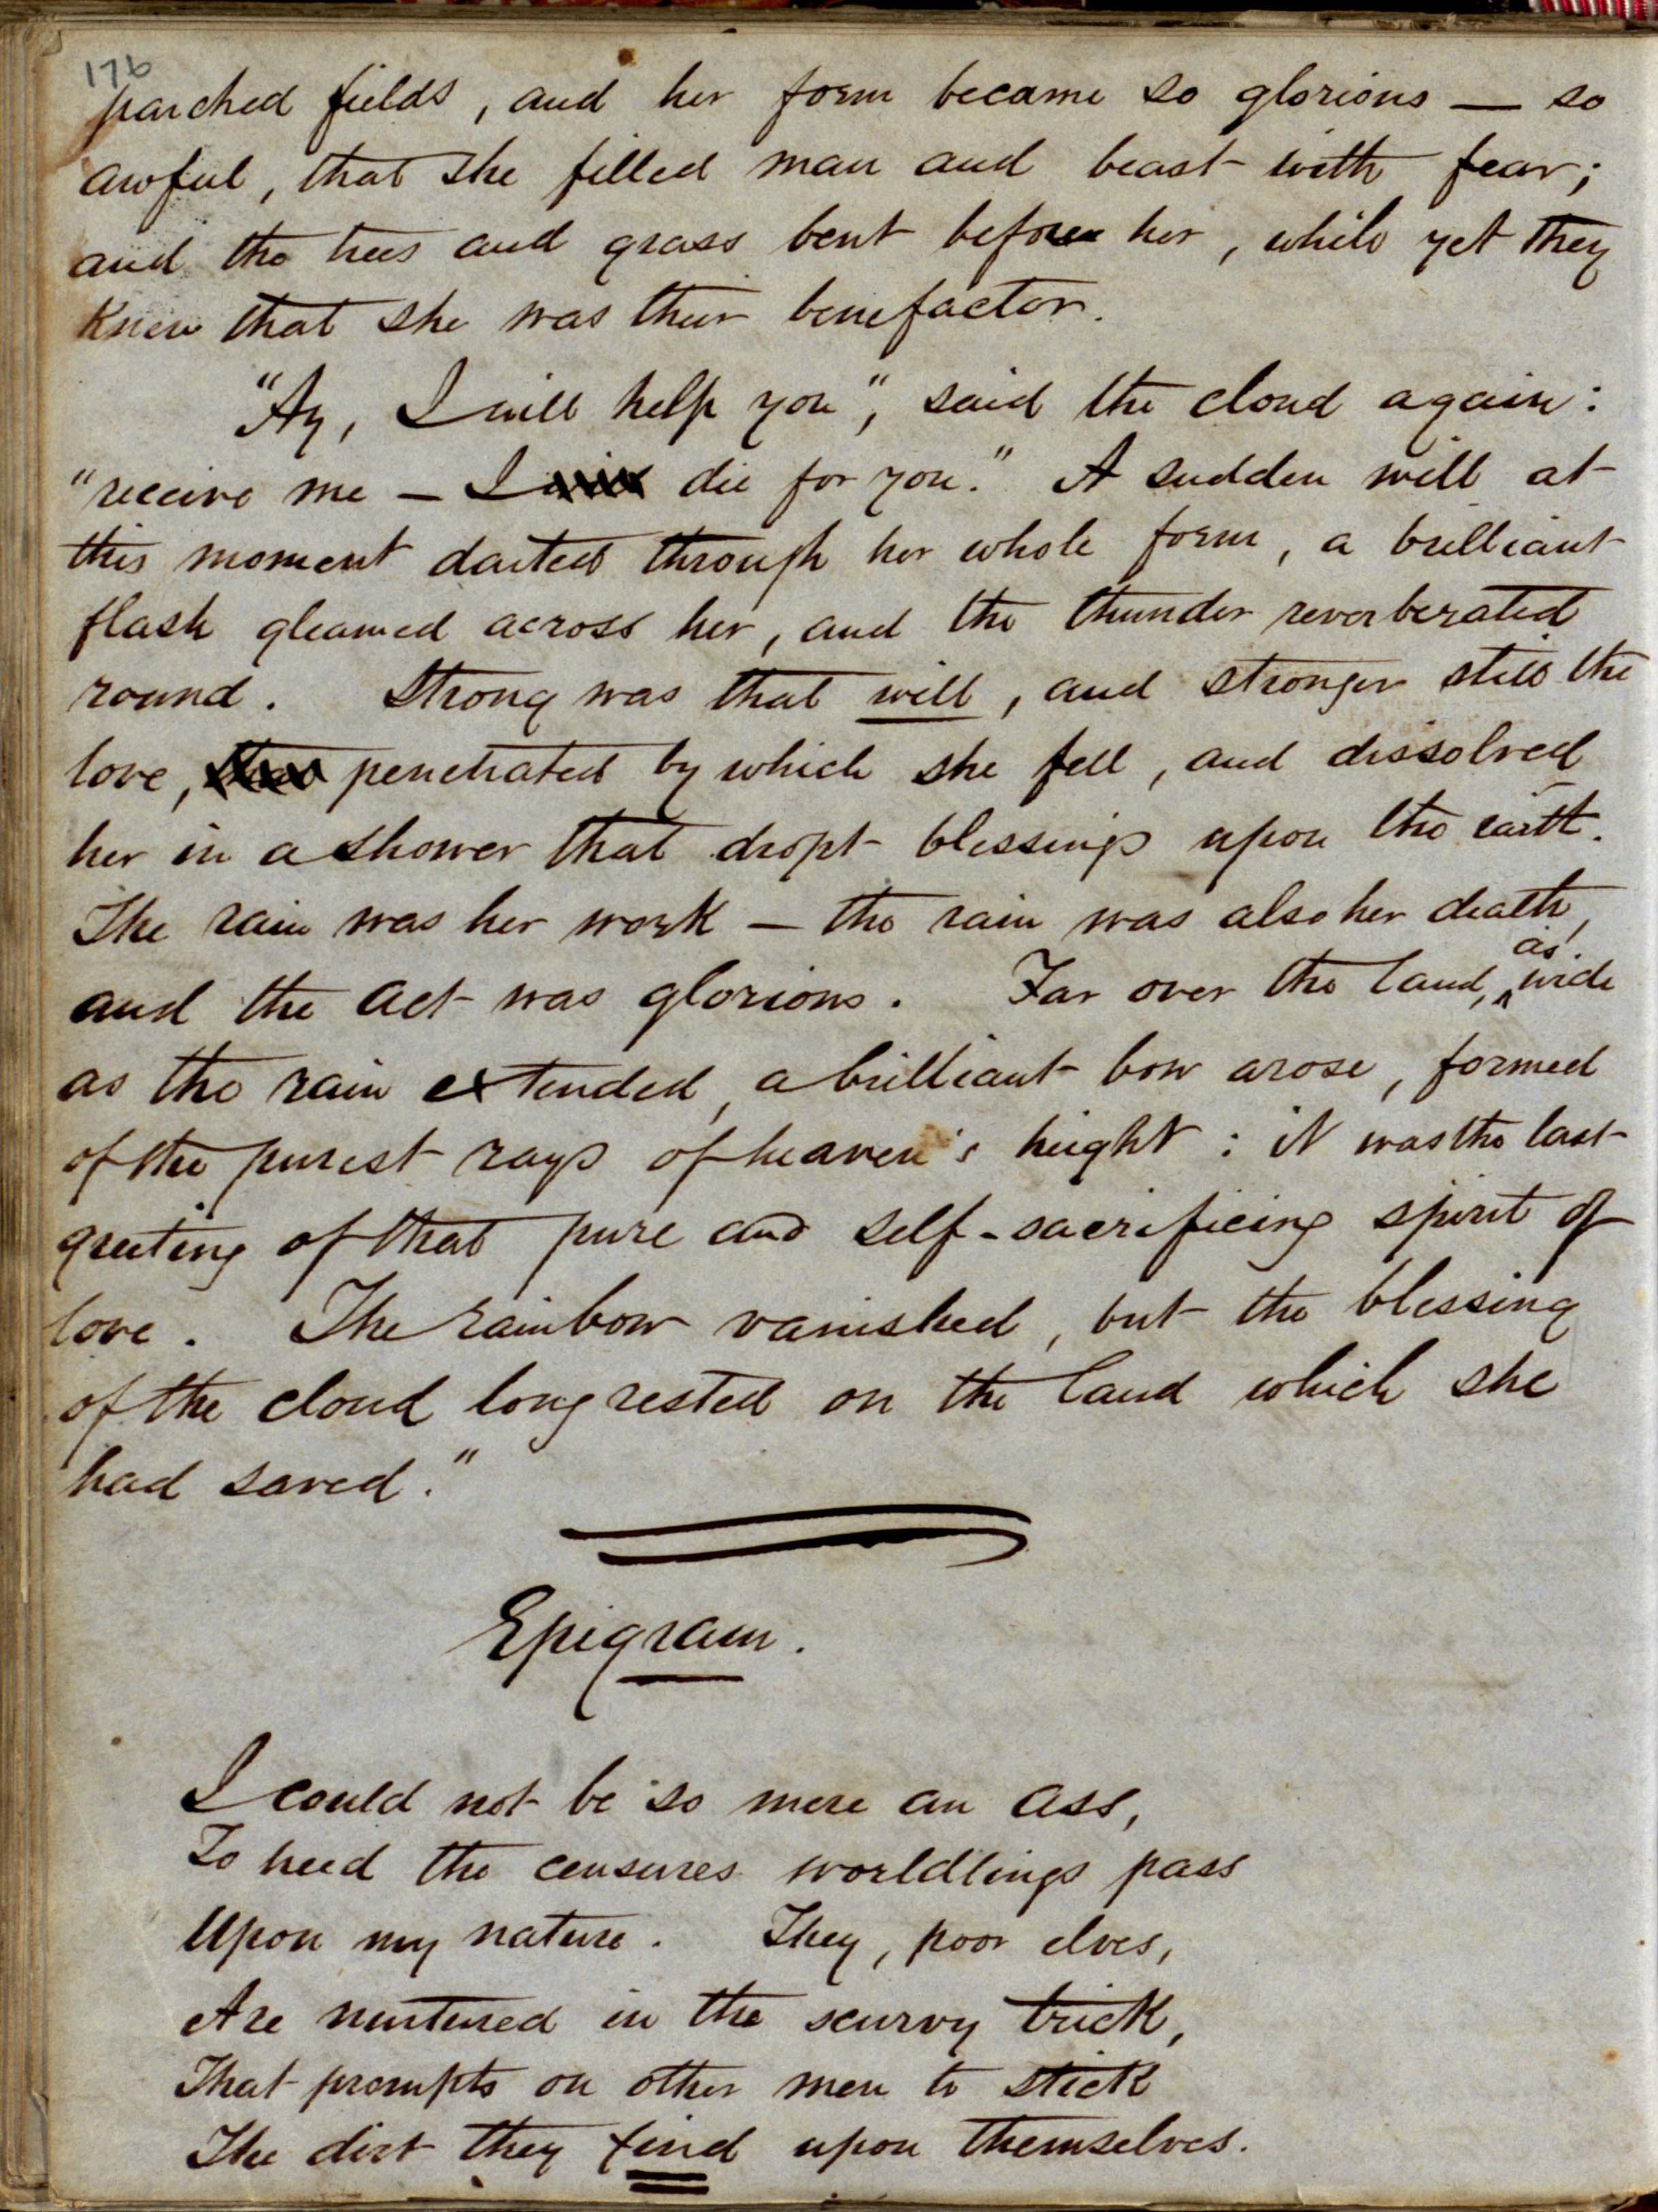 176
parched fields, and her form became so glorious — so
awful, that she filled man and beast with fear;
and the trees and grass bent before her, while yet they
knew that she was their benefactor.
"Ay, I will help you", said the cloud again:
"receive me — I die for you." A sudden will at
this moment darted through her whole form, a brilliant
flash gleamed across her, and the thunder reverberated
round. Strong was that will, and stronger still the
love, penetrated by which she fell, and dissolved
her in a shower that dropt blessings upon the earth.
The rain was her work — the rain was also her death,
and the act was glorious. Far over the land, as wide
as the rain extended, a brilliant bow arose, formed
of the purest rays of heaven's height: it was the last
greeting of that pure and self-sacrificing spirit of
love. The rainbow vanished, but the blessing
of the cloud long rested on the land which she
had saved."
Epigram.
I could not be so mere an ass,
To heed the censures worldlings pass
Upon my nature. They, poor elves,
Are nurtured in the scurvy trick,
That prompts on other men to stick
The dirt they find upon themselves.